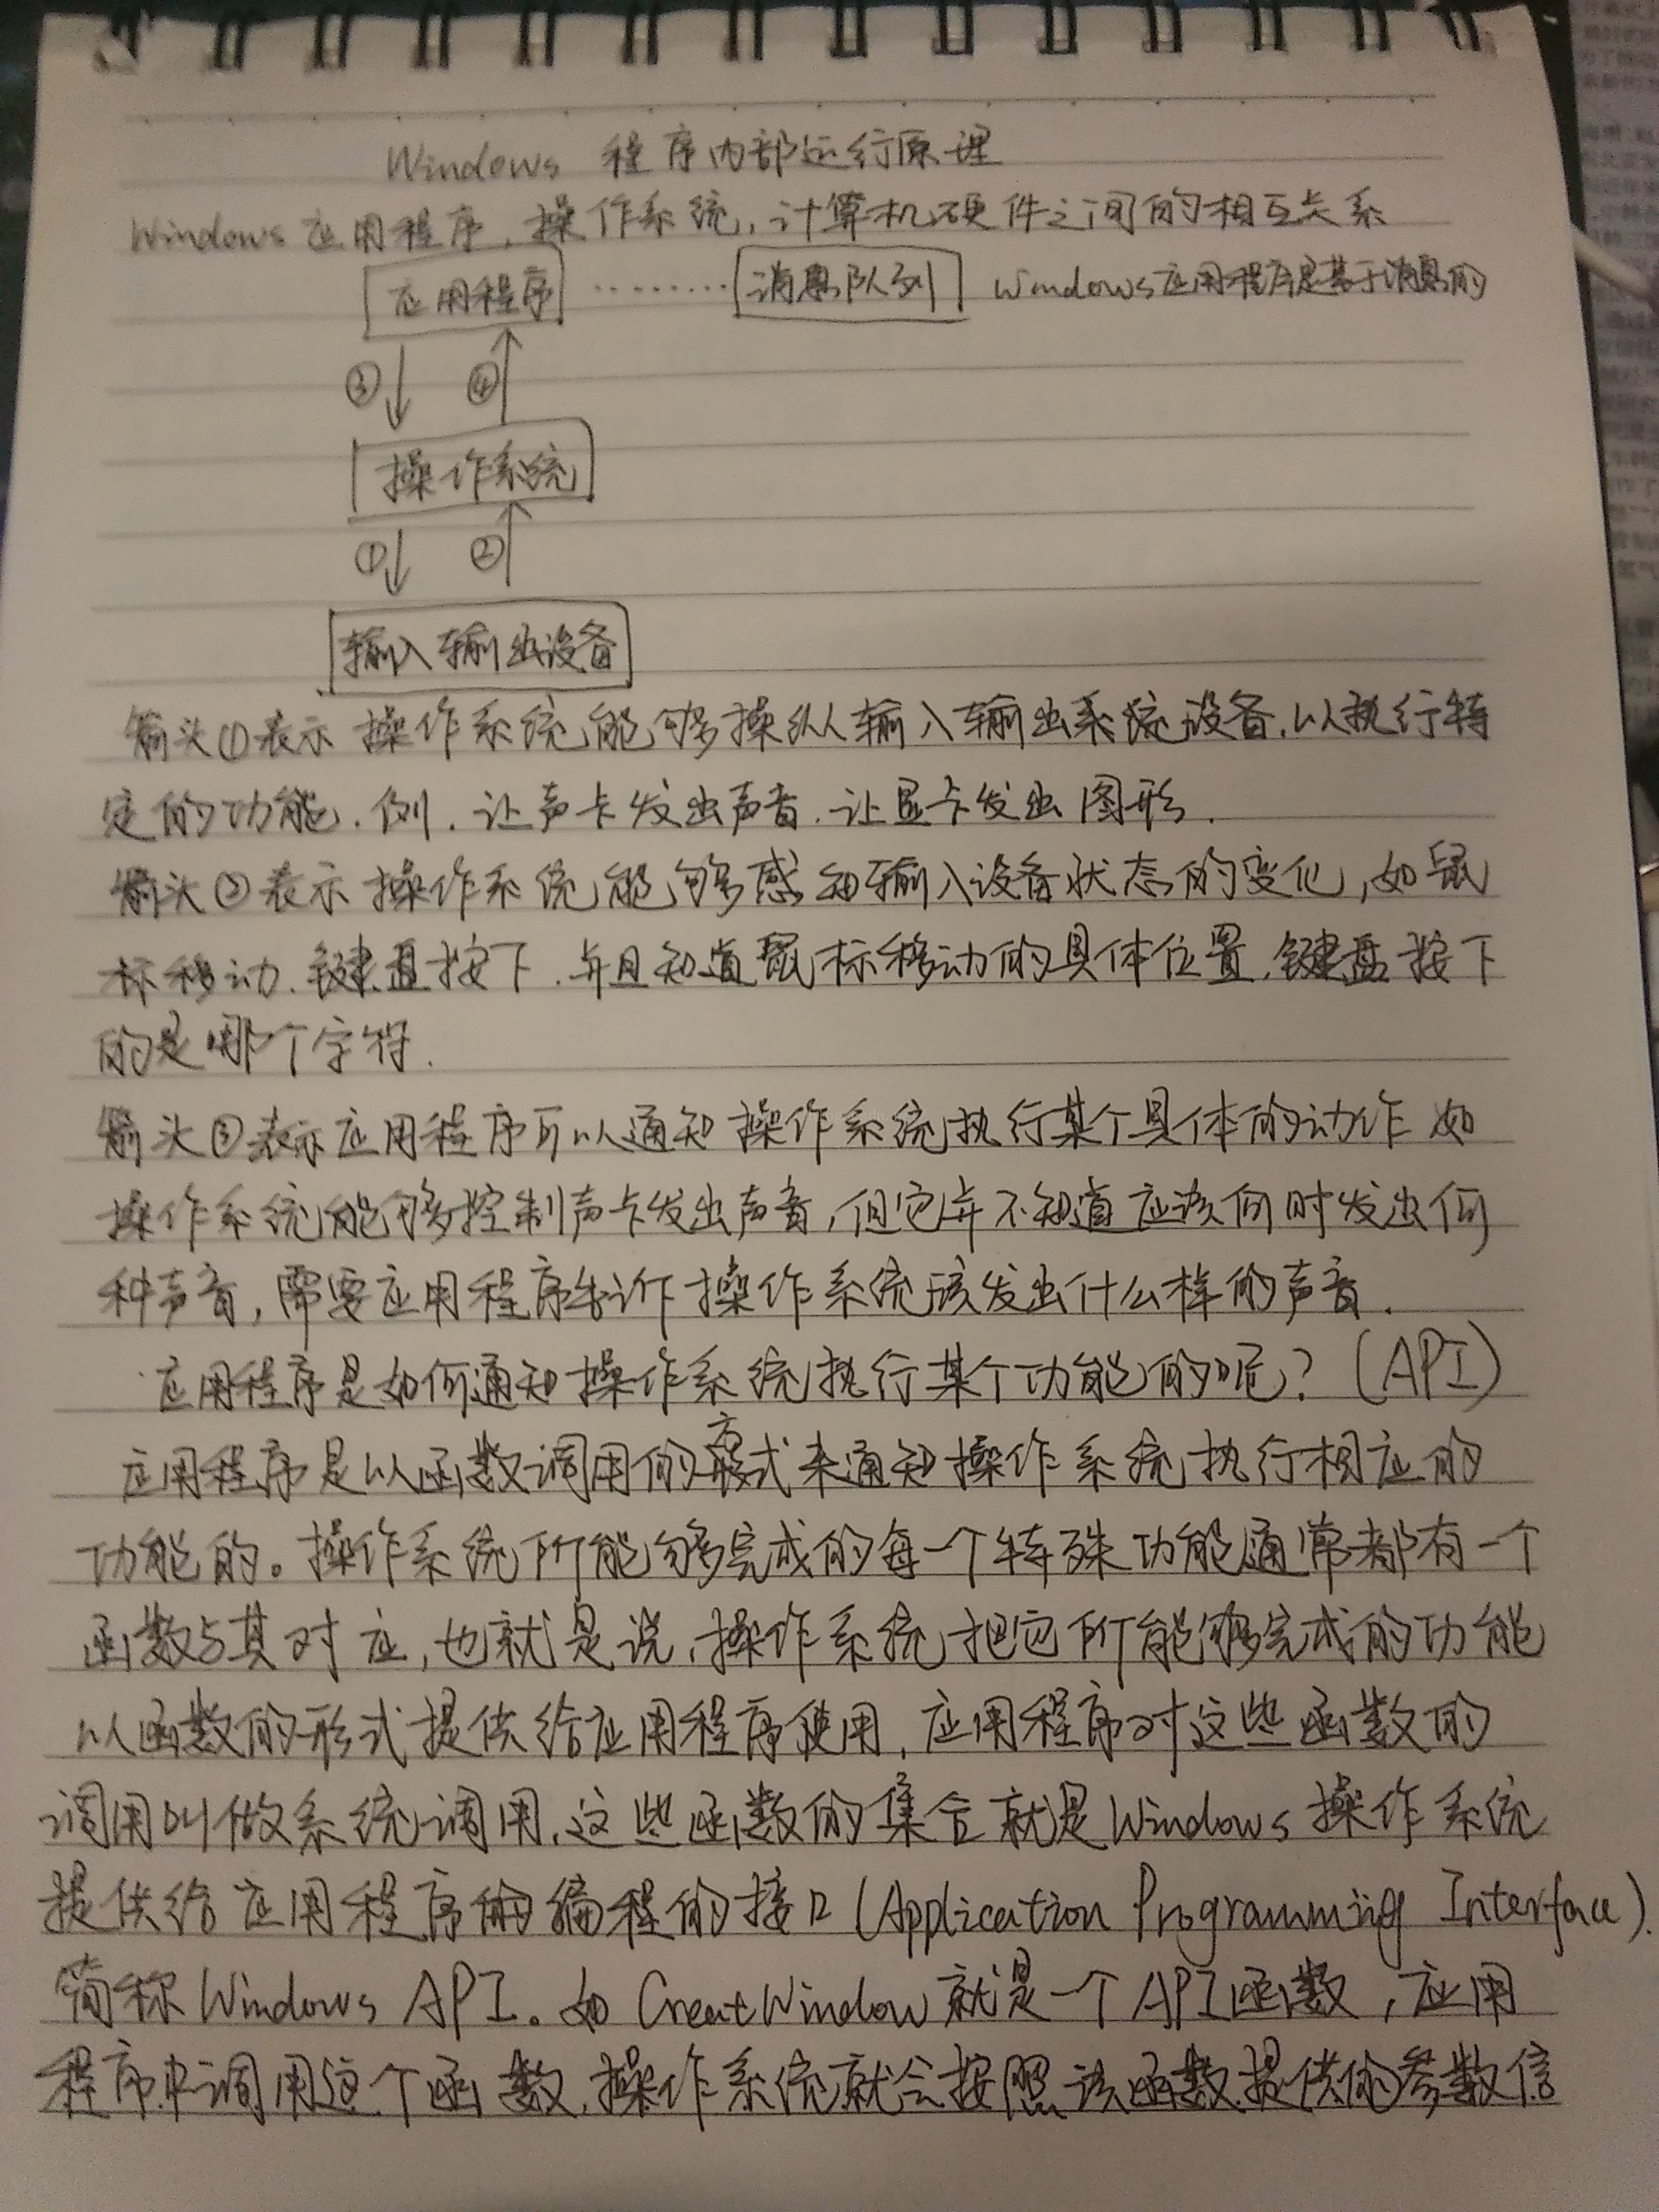 Windows 程序内部运行原理
Windows应用程序,操作系统,计算机硬件之间的相互关系
应用程序 ········ 消息队列 Windows应用程序是基于消息的
③ ④
操作系统
① ②
输入输出设备
箭头①表示操作系统能够操纵输入输出系统设备,以执行特
定的功能.例.让声卡发出声音.让显卡发出图形.
箭头②表示操作系统能够感知输入设备状态的变化,如鼠
标移动.键盘按下.并且知道鼠标移动的具体位置,键盘按下
的是哪个字符.
箭头③表示应用程序可以通知操作系统执行某个具体的动作 如
操作系统能够控制声卡发出声音,但它并不知道应该何时发出何
种声音,需要应用程序告诉操作系统该发出什么样的声音.
应用程序是如何通知操作系统执行某个功能的呢?(API)
应用程序是以函数调用的方式来通知操作系统执行相应的
功能的。操作系统所能够完成的每一个特殊功能通常都有一个
函数与其对应,也就是说,操作系统把它所能够完成的功能
以函数的形式提供给应用程序使用,应用程序对这些函数的
调用叫做系统调用,这些函数的集合就是Windows操作系统
提供给应用程序编程的接口(Application Programming Interface).
简称Windows API。如CreatWindow就是一个API函数,应用
程序中调用这个函数,操作系统就会按照该函数提供的参数信